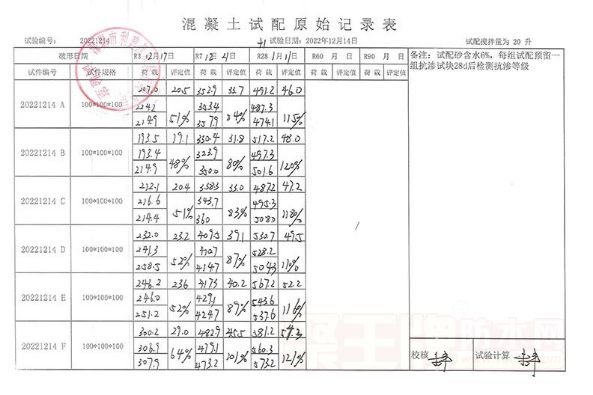 混凝土试配原始记录表
试验编号: 20221214 试配日期: 2022年12月14日 试配搅拌量为 20 升
破形日期 R3 12月17日 R7 12月21日 R28 1月11日 R60 月 日 R90 月 日
备注: 试配砂含水6%, 每组试配预留一组抗渗试块28d后检测抗渗等级
试件编号 试件规格 荷载 评定值 荷载 评定值 荷载 评定值 荷载 评定值 荷载 评定值
20221214 A 100*100*100 20.5 352.9 33.7 491.2 46.0
353.4 487.3
214.9 51% 357.9 84% 474.1 115%
20221214 B 100*100*100 193.5 19.1 350.4 31.8 517.2 48.0
193.4 323.9 497.3
214.9 48% 350.0 80% 501.6 120%
20221214 C 100*100*100 212.1 20.4 358.3 33.0 487.2 47.2
216.6 343.7 495.3
214.4 51% 360 83% 508.0 118%
20221214 D 100*100*100 232.0 23.2 409.5 39.1 530.7 49.5
241.3 410.7 528.2
258.5 52% 414.7 87% 504.3
20221214 E 100*100*100 246.2 23.6 417.3 40.2 567.2 52.2
246.0 429.1 543.6
251.2 52% 424.7 89% 537.6 116%
20221214 F 100*100*100 300.2 29.0 482.9 45.5 581.2 54.3
306.9 479.1 560.3
307.9 64% 473.2 101% 573.2 121%
校核 试验计算